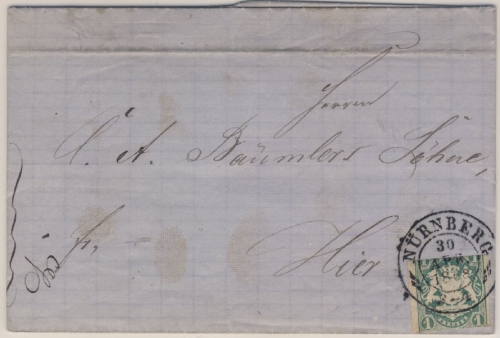 Herren
C. A. Bäumlers Söhne,
fr.
Hier
NÜRNBERG
30
APR
1 1